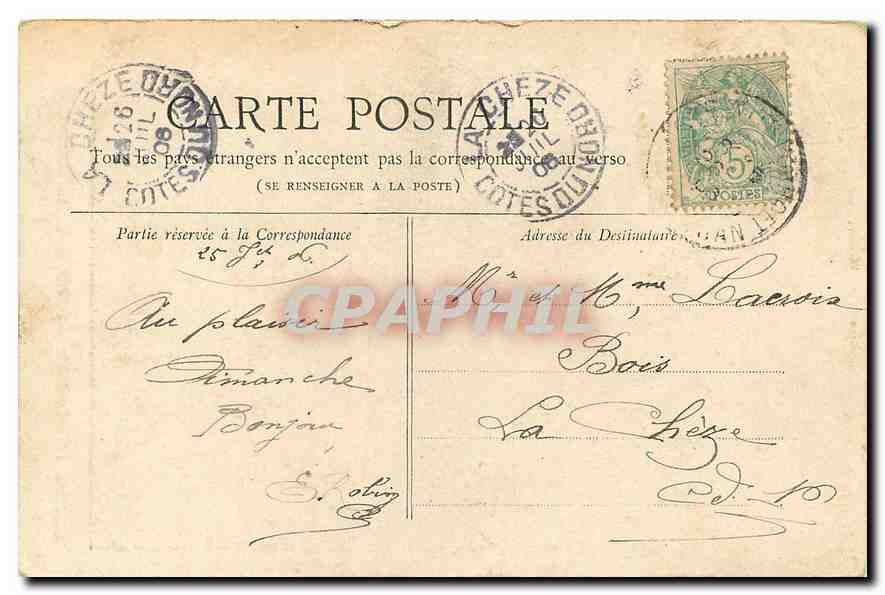 CARTE POSTALE
Tous les pays étrangers n'acceptent pas la correspondance au verso
(SE RENSEIGNER A LA POSTE)
LA CHÈZE
26 JUIL 06
COTES DU NORD
LA CHÈZE
26 JUIL 06
COTES DU NORD
5
POSTES
Partie réservée à la Correspondance
25 Jet 06
Au plaisir
Dimanche
Bonjour
E Robin
Adresse du Destinataire
Mr et Mme Lacroix
Bois
La Chèze
C. d. N
CPAPHIL